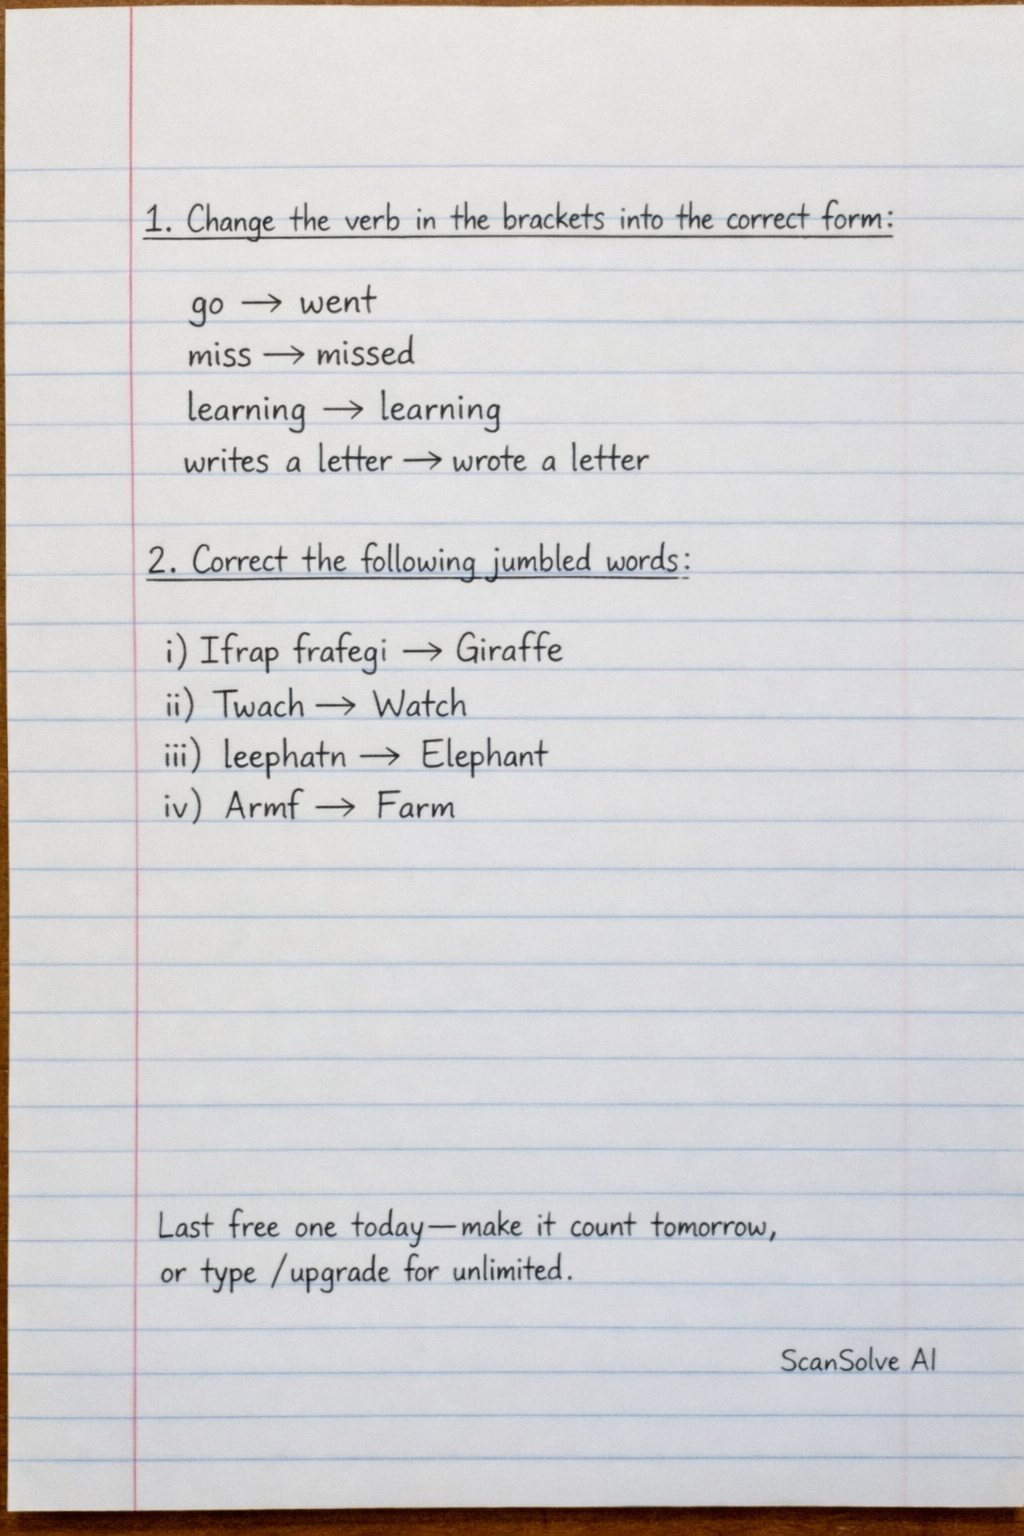 1. Change the verb in the brackets into the correct form:
go → went
miss → missed
learning → learning
writes a letter → wrote a letter
2. Correct the following jumbled words:
i) Ifrap frafegi → Giraffe
ii) Twach → Watch
iii) leephatn → Elephant
iv) Armf → Farm
Last free one today—make it count tomorrow,
or type /upgrade for unlimited.
ScanSolve AI